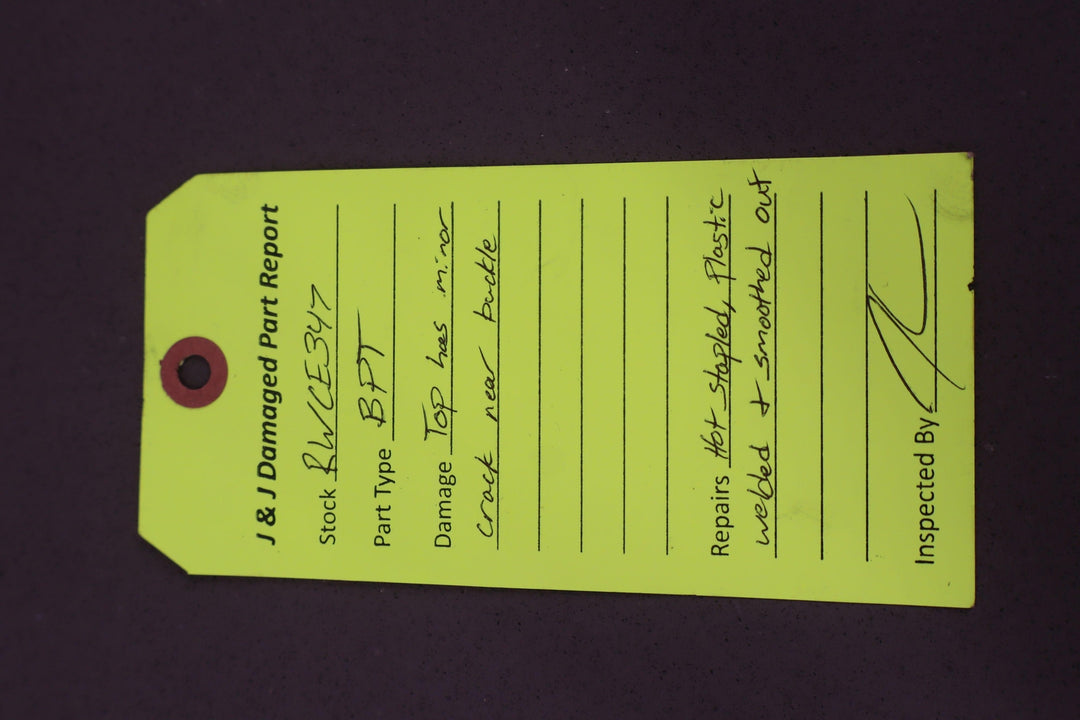 J & J Damaged Part Report
Stock RWCE347
Part Type BPT
Damage Top has minor
crack near buckle
Repairs Hot stapled, Plastic
welded & smoothed out
Inspected By